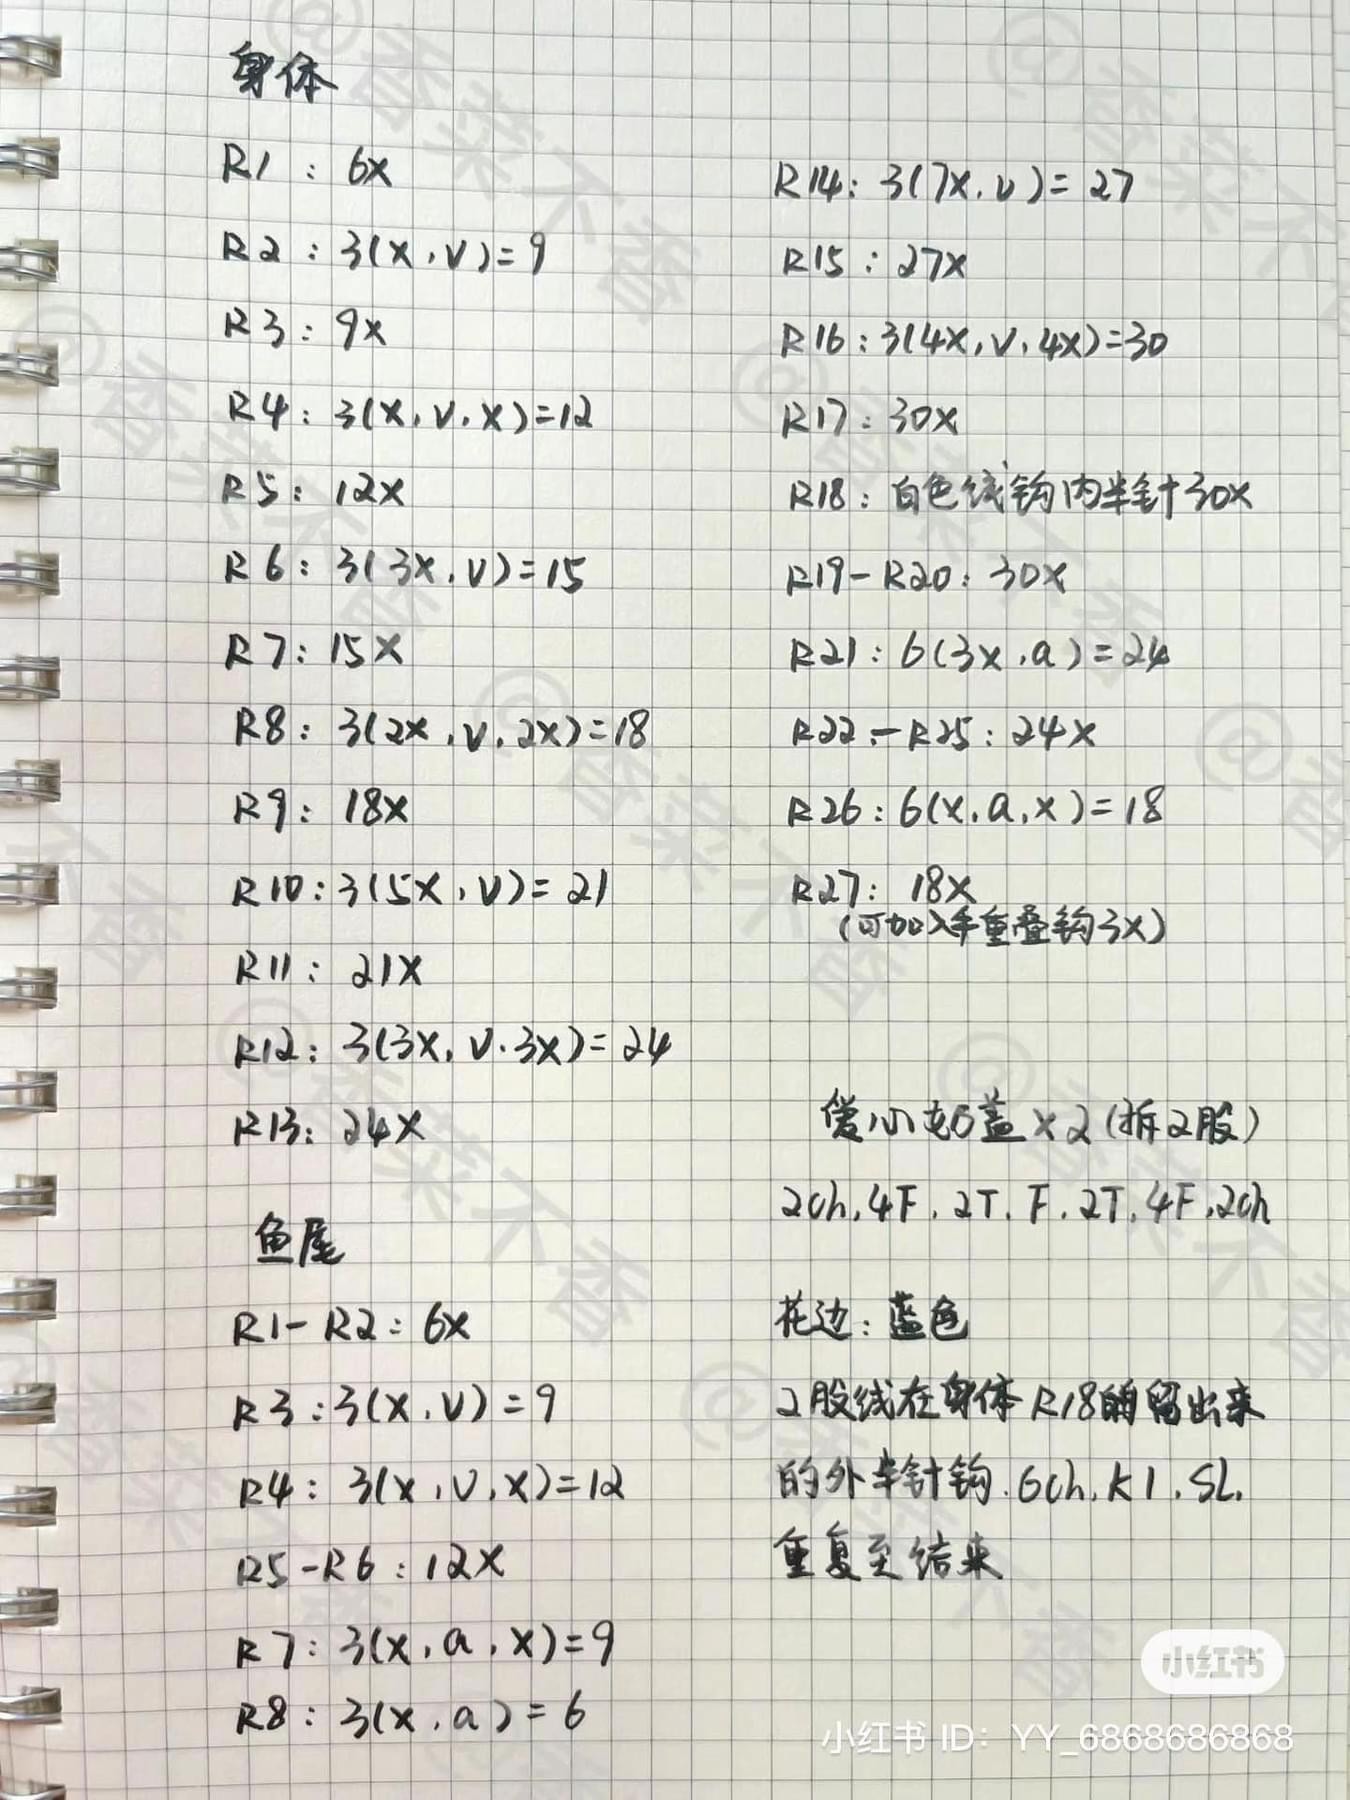 身体
R1：6x
R2：3(x，v)=9
R3：9x
R4：3(x，v，x)=12
R5：12x
R6：3(3x，v)=15
R7：15x
R8：3(2x，v，2x)=18
R9：18x
R10：3(5x，v)=21
R11：21x
R12：3(3x，v，3x)=24
R13：24x
鱼尾
R1-R2：6x
R3：3(x，v)=9
R4：3(x，v，x)=12
R5-R6：12x
R7：3(x，a，x)=9
R8：3(x，a)=6
R14：3(7x，v)=27
R15：27x
R16：3(4x，v，4x)=30
R17：30x
R18：白色线钩内半针30x
R19-R20：30x
R21：6(3x，a)=24
R22-R25：24x
R26：6(x，a，x)=18
R27：18x
(可加入手重叠钩3x)
爱心盖x2(拆2股)
2ch，4F，2T，F，2T，4F，2ch
花边：蓝色
2股线在身体R18的留出来
的外半针钩，6ch，K1，SL，
重复至结束
小红书
小红书 ID：YY_6868686868
@香菜不香